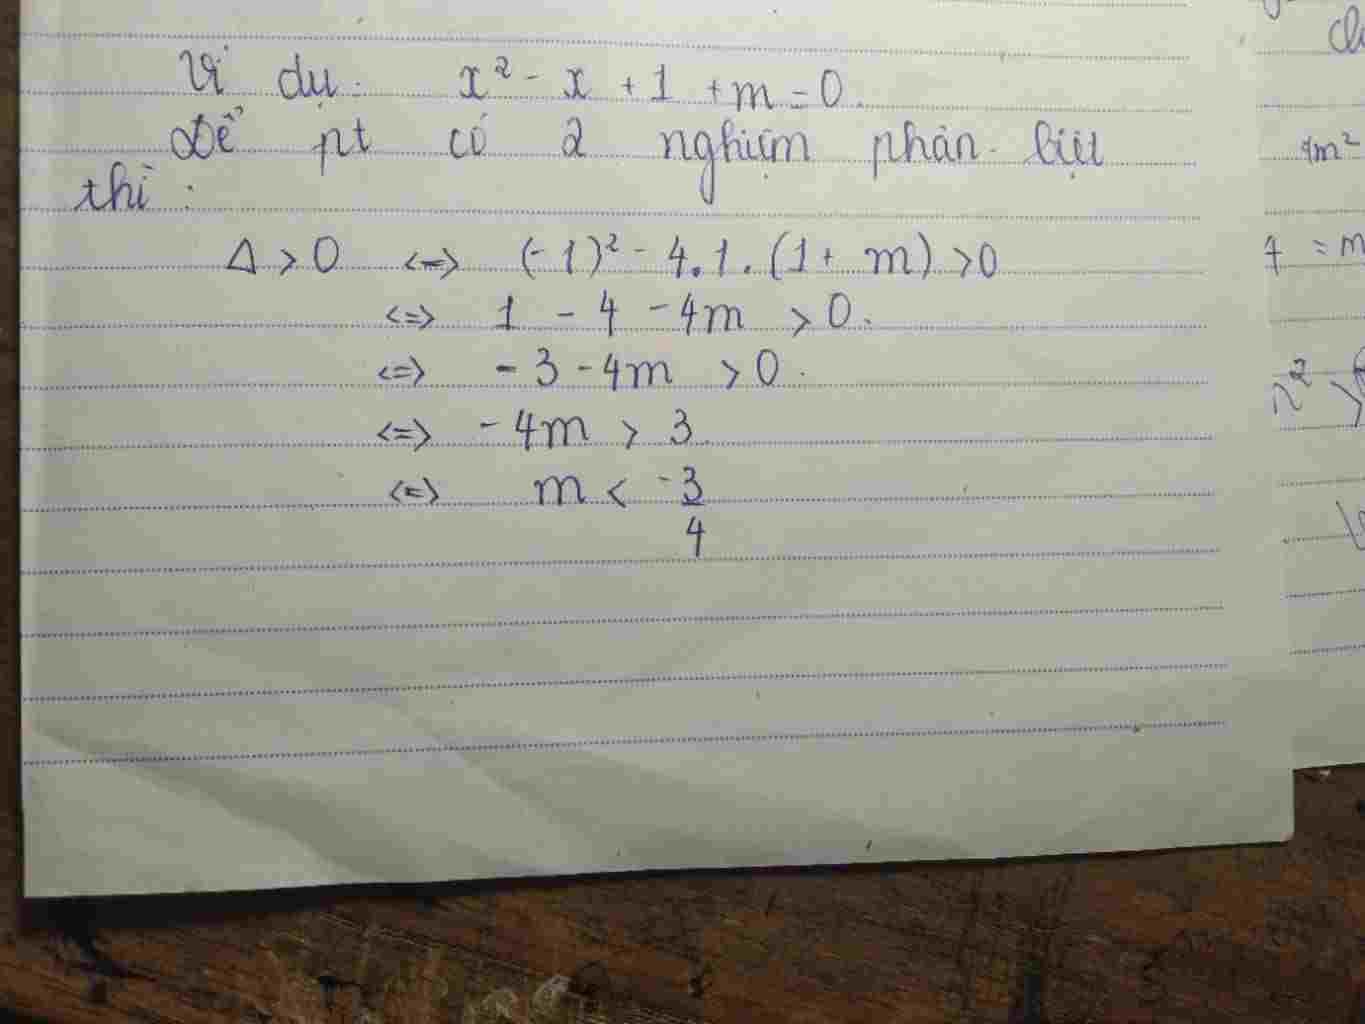 Ví dụ: x² - x + 1 + m = 0.
Để pt có 2 nghiệm phân biệt
thì :
Δ > 0 <=> (-1)² - 4.1.(1 + m) > 0
<=> 1 - 4 - 4m > 0.
<=> - 3 - 4m > 0.
<=> - 4m > 3
<=> m < -3/4
4m²
7 = m